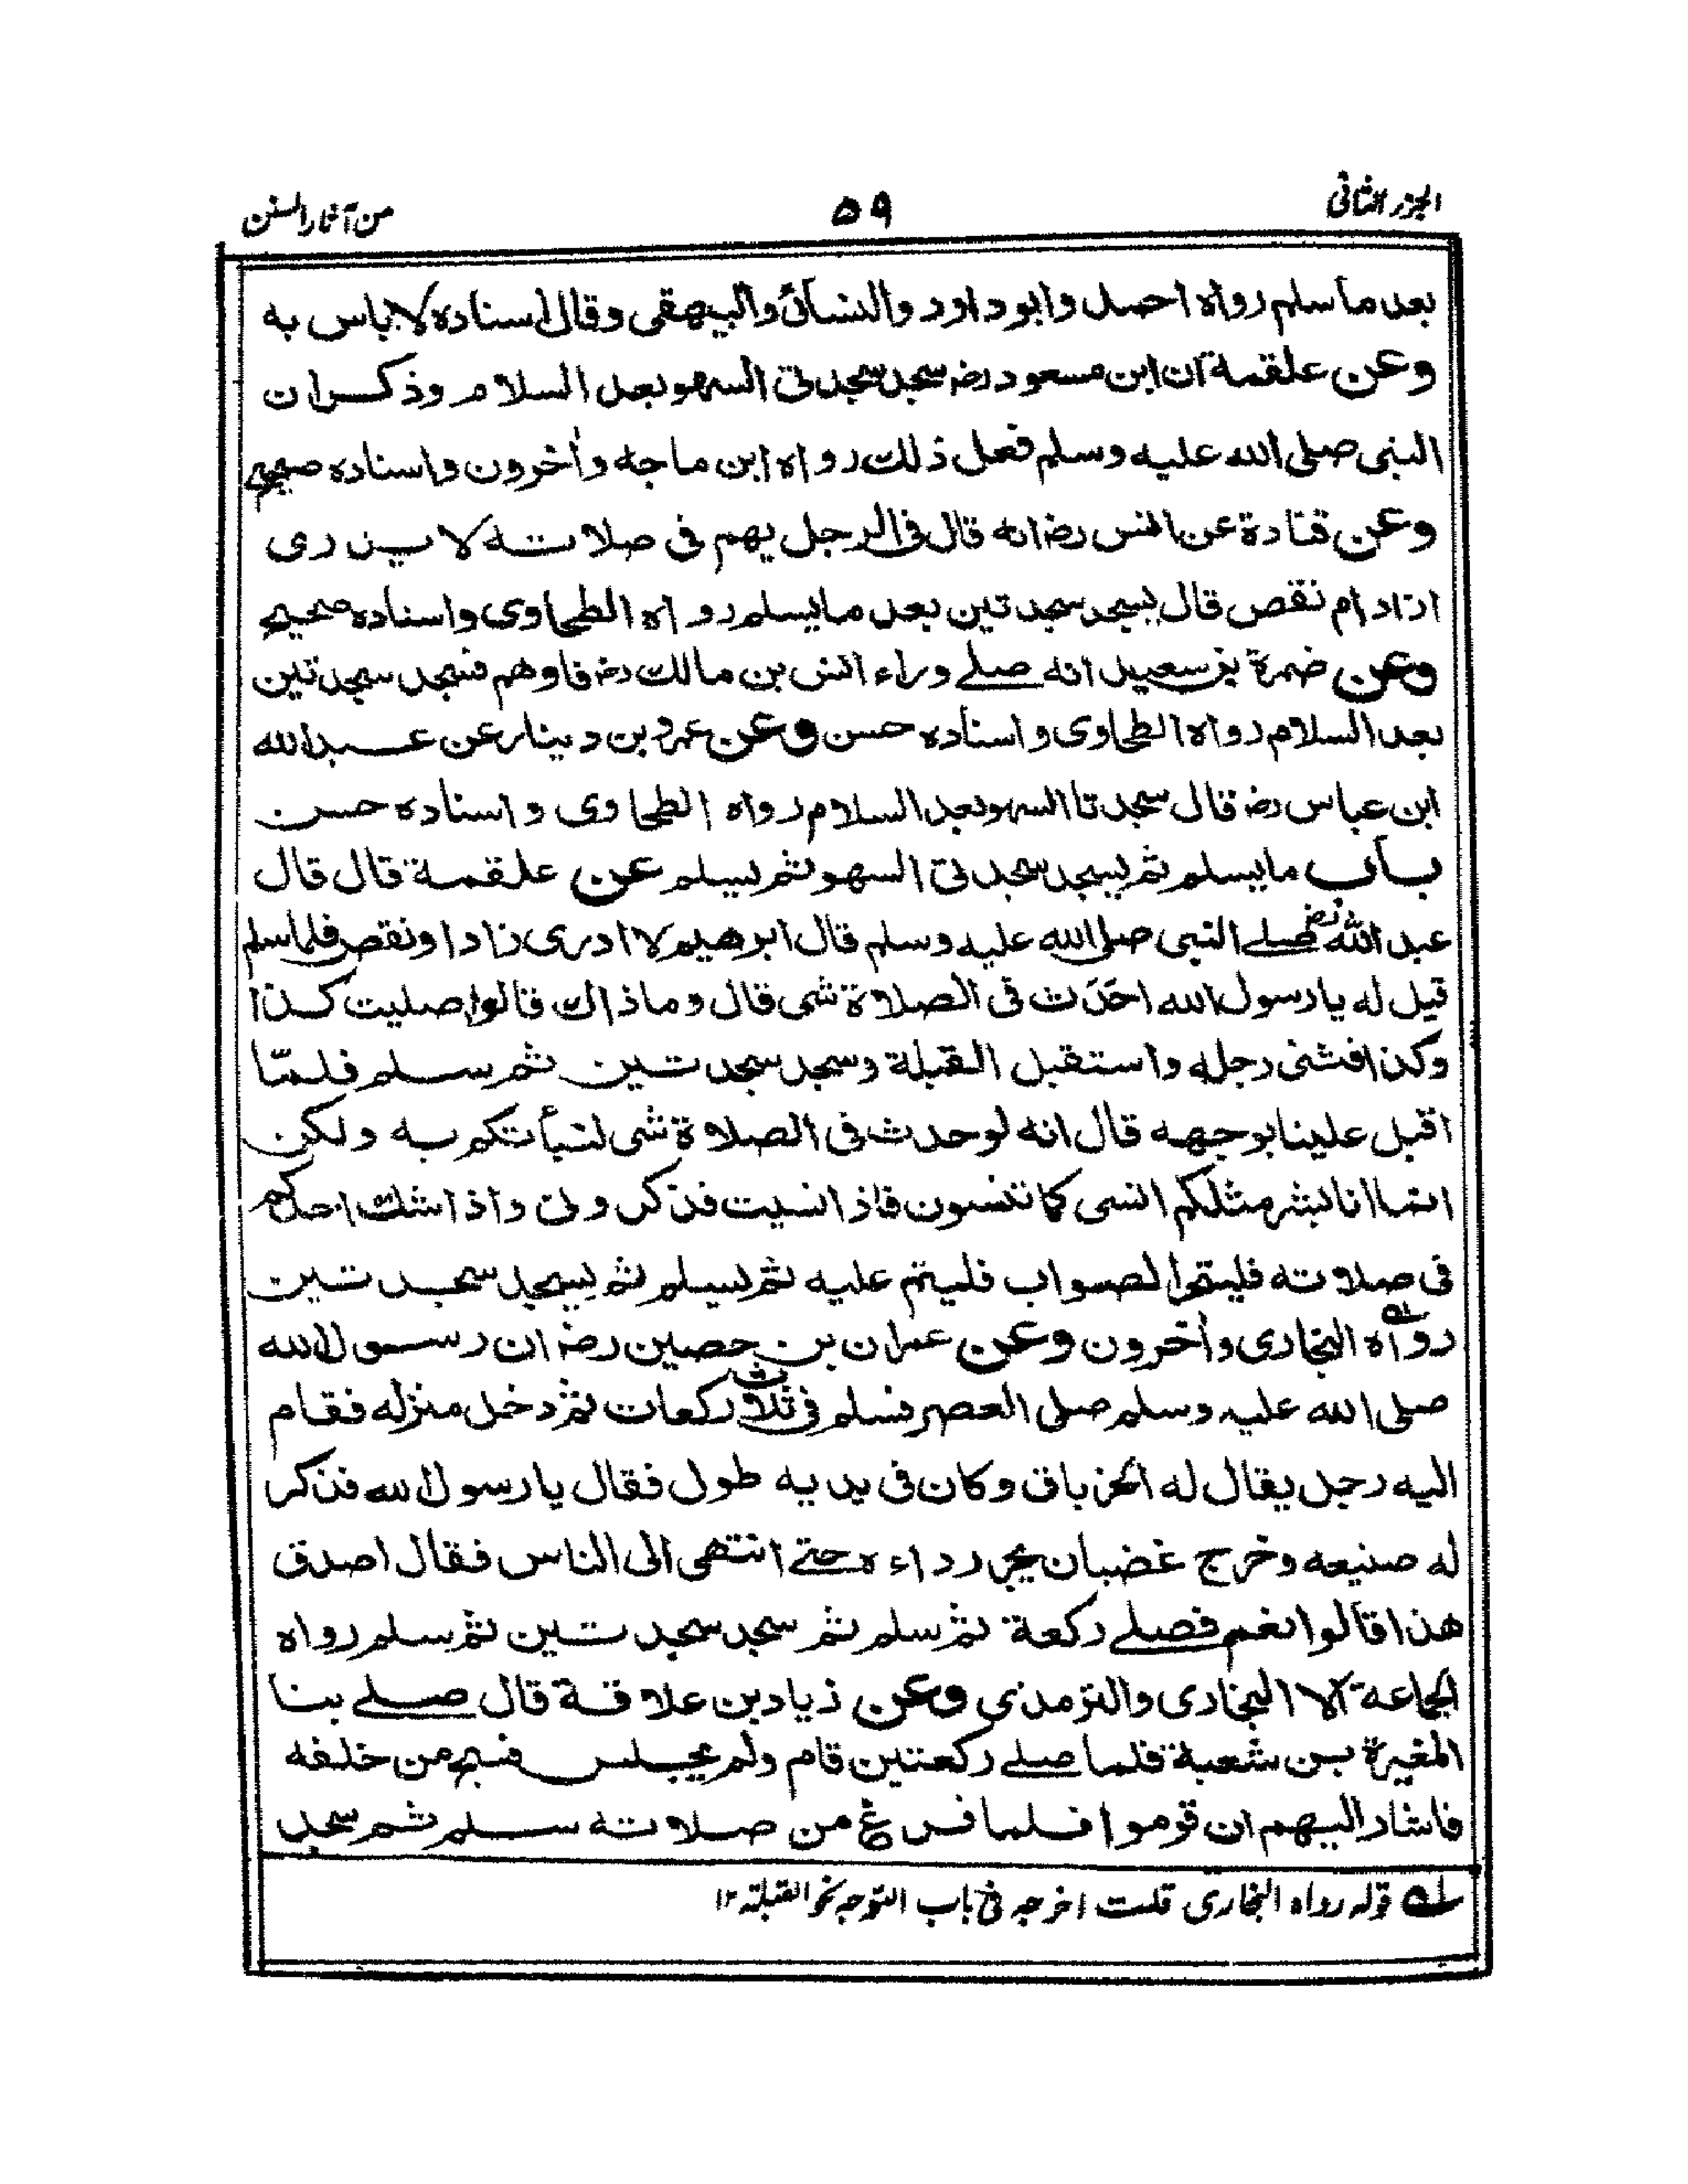 الجزء الثانی ٥٩ من آثار السنن
بعد ما سلم رواه احمد وابو داود والنسائی والبیهقی وقال اسناده لا باس به
وعن علقمة ان ابن مسعود رضـ سجد سجدتی السهو بعد السلام وذكر ان
النبی صلی الله علیه وسلم فعل ذلك رواه ابن ماجه وأخرون واسناده صحیح
وعن قتادة عن انس رضـ انه قال فی الرجل یهم فی صلاته لا یدری
ازاد ام نقص قال یسجد سجدتین بعد ما یسلم رواه الطحاوی واسناده صحیح
وعن ضمرة بن سعید انه صلے وراء انس بن مالك رضـ فاوهم فسجد سجدتین
بعد السلام رواه الطحاوی واسناده حسن وعن عمرو بن دینار عن عبد الله
ابن عباس رضـ قال سجدتا السهو بعد السلام رواه الطحاوی واسناده حسن
باب ما یسلم ثم یسجد سجدتی السهو ثم یسلم عن علقمة قال قال
عبد الله رضـ صلے النبی صلی الله علیه وسلم قال ابرهیم لا ادری زاد او نقص فلما سلم
قیل له یا رسول الله احَدَث فی الصلاة شی قال وما ذاك قالوا صلیت كذا
وكذا فثنی رجله واستقبل القبلة وسجد سجدتین ثم سلم فلمّا
اقبل علینا بوجهه قال انه لو حدث فی الصلاة شی لنبأتكم به ولكن
انما انا بشر مثلكم انسی كما تنسون فاذا نسیت فذكرونی واذا شك احدكم
فی صلاته فلیتحر الصواب فلیتم علیه ثم یسلم ثم یسجد سجدتین
رواه البخاری وأخرون وعن عمران بن حصین رضـ ان رسول الله
صلی الله علیه وسلم صلی العصر فسلم فی ثلاث ركعات ثم دخل منزله فقام
الیه رجل یقال له الخرباق وكان فی یدیه طول فقال یا رسول الله فذكر
له صنیعه وخرج غضبان یجر رداءه حتے انتهی الی الناس فقال اصدق
هذا قالوا نعم فصلے ركعة ثم سلم ثم سجد سجدتین ثم سلم رواه
الجماعة الا البخاری والترمذی وعن زیاد بن علاقة قال صلے بنا
المغیرة بن شعبة فلما صلے ركعتین قام ولم یجلس فسبح من خلفه
فاشار الیهم ان قوموا فلما فرغ من صلاته سلم ثم سجد
لـه قوله رواه البخاری قلت اخرجه فی باب التوجه نحو القبلة ١٢